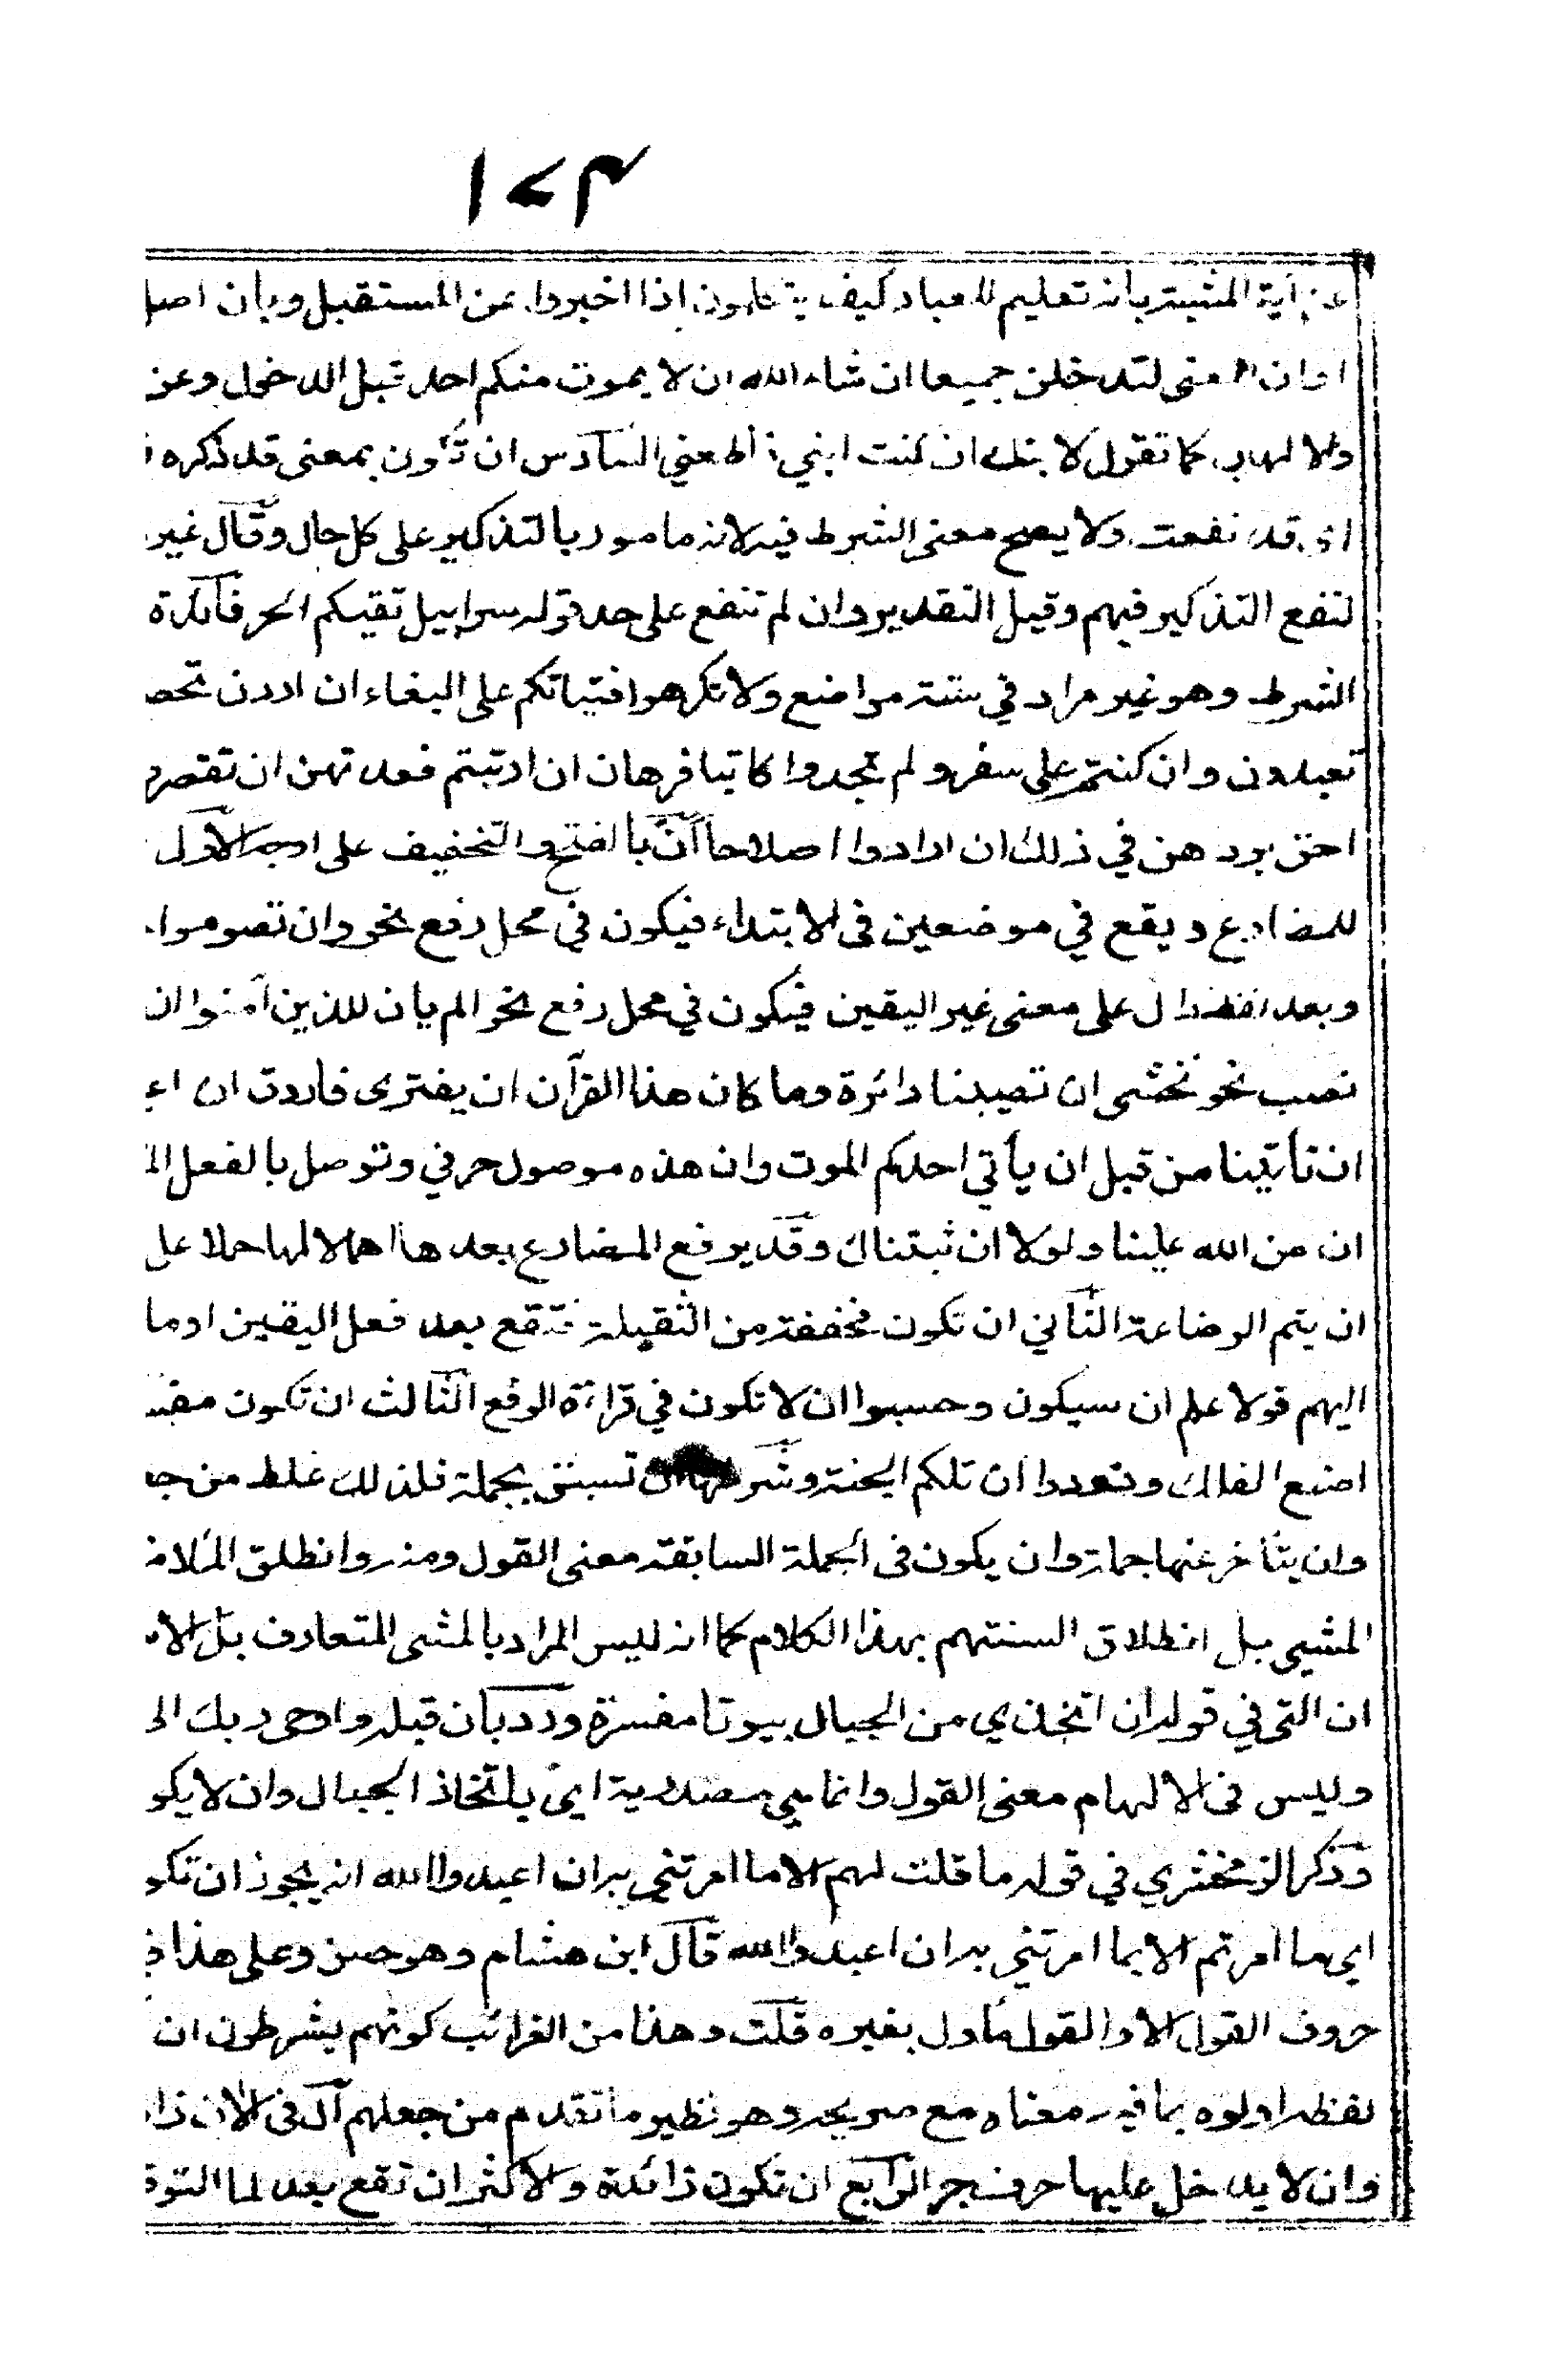 ١٧٣
عن آية المشية بانه تعليم للعباد كيف يتكلمون اذا اخبروا عن المستقبل وبان اصل
اوان المعنى لتدخلن جميعا ان شاء الله ان لا يموت منكم احد قبل الدخول وعن
والالهاب كما تقول لابنك ان كنت ابني المعني السادس ان تكون بمعنى قد ذكره
اي قد نفعت ولا يصح معنى الشرط فيه لانه مامور بالتذكير على كل حال وقال غير
لنفع التذكير فيهم وقيل التقدير وان لم تنفع على حد قوله سرابيل تقيكم الحر فائدة
الشرط وهو غير مراد في ستة مواضع ولا تكرهوا فتياتكم على البغاء ان اردن تحص
تعبدون وان كنتم على سفر ولم تجدوا كاتبا فرهان ان ارتبتم فعدتهن ان تقصرو
احق بردهن في ذلك ان ارادوا اصلاحا أن بالفتح والتخفيف على اوجه الاول
للمضارع ويقع في موضعين في الابتداء فيكون في محل رفع نحو وان تصوموا
وبعد لفظ دال على معنى غير اليقين فيكون في محل رفع نحو الم يان للذين آمنوا ان
نصب نحو نخشى ان تصيبنا دائرة وما كان هذا القرآن ان يفترى فاردت ان اع
ان تأتينا من قبل ان يأتي احدكم الموت وان هذه موصول حرفي وتوصل بالفعل الم
ان من الله علينا ولولا ان ثبتناك وقد يرفع المضارع بعدها اهمالا لها حملا على
ان يتم الرضاعة الثاني ان تكون مخففة من الثقيلة فتقع بعد فعل اليقين اوما
اليهم قولا علم ان سيكون وحسبوا ان لا تكون في قراءة الرفع الثالث ان تكون مفس
اصنع الفلك ونودوا ان تلكم الجنة وشرطها ان تسبق بجملة فلذلك غلط من جع
وان يتأخر عنها جملة وان يكون في الجملة السابقة معنى القول ومنه وانطلق الملأ
المشي بل انطلاق السنتهم بهذا الكلام كما انه ليس المراد بالمشى المتعارف بل الا
ان التي في قوله ان اتخذي من الجبال بيوتا مفسرة ورد بان قبله واوحى ربك الى
وليس في الالهام معنى القول وانما هي مصدرية اي باتخاذ الجبال وان لا يكو
وذكر الزمخشري في قوله ما قلت لهم الا ما امرتني به ان اعبدوا الله انه يجوز ان تكو
اي ما امرتهم الا بما امرتني به ان اعبدوا الله قال ابن هشام وهو حسن وعلى هذا
حروف القول الا والقول مأول بغيره قلت وهذا من الغرائب كونهم يشرطون ان
لفظه اولوه بما فيه معناه مع صريحه وهو نظير ما تقدم من جعلهم ال في الآن زا
وان لا يدخل عليها حرف جر الرابع ان تكون زائدة والاكثر ان تقع بعد لما التوق